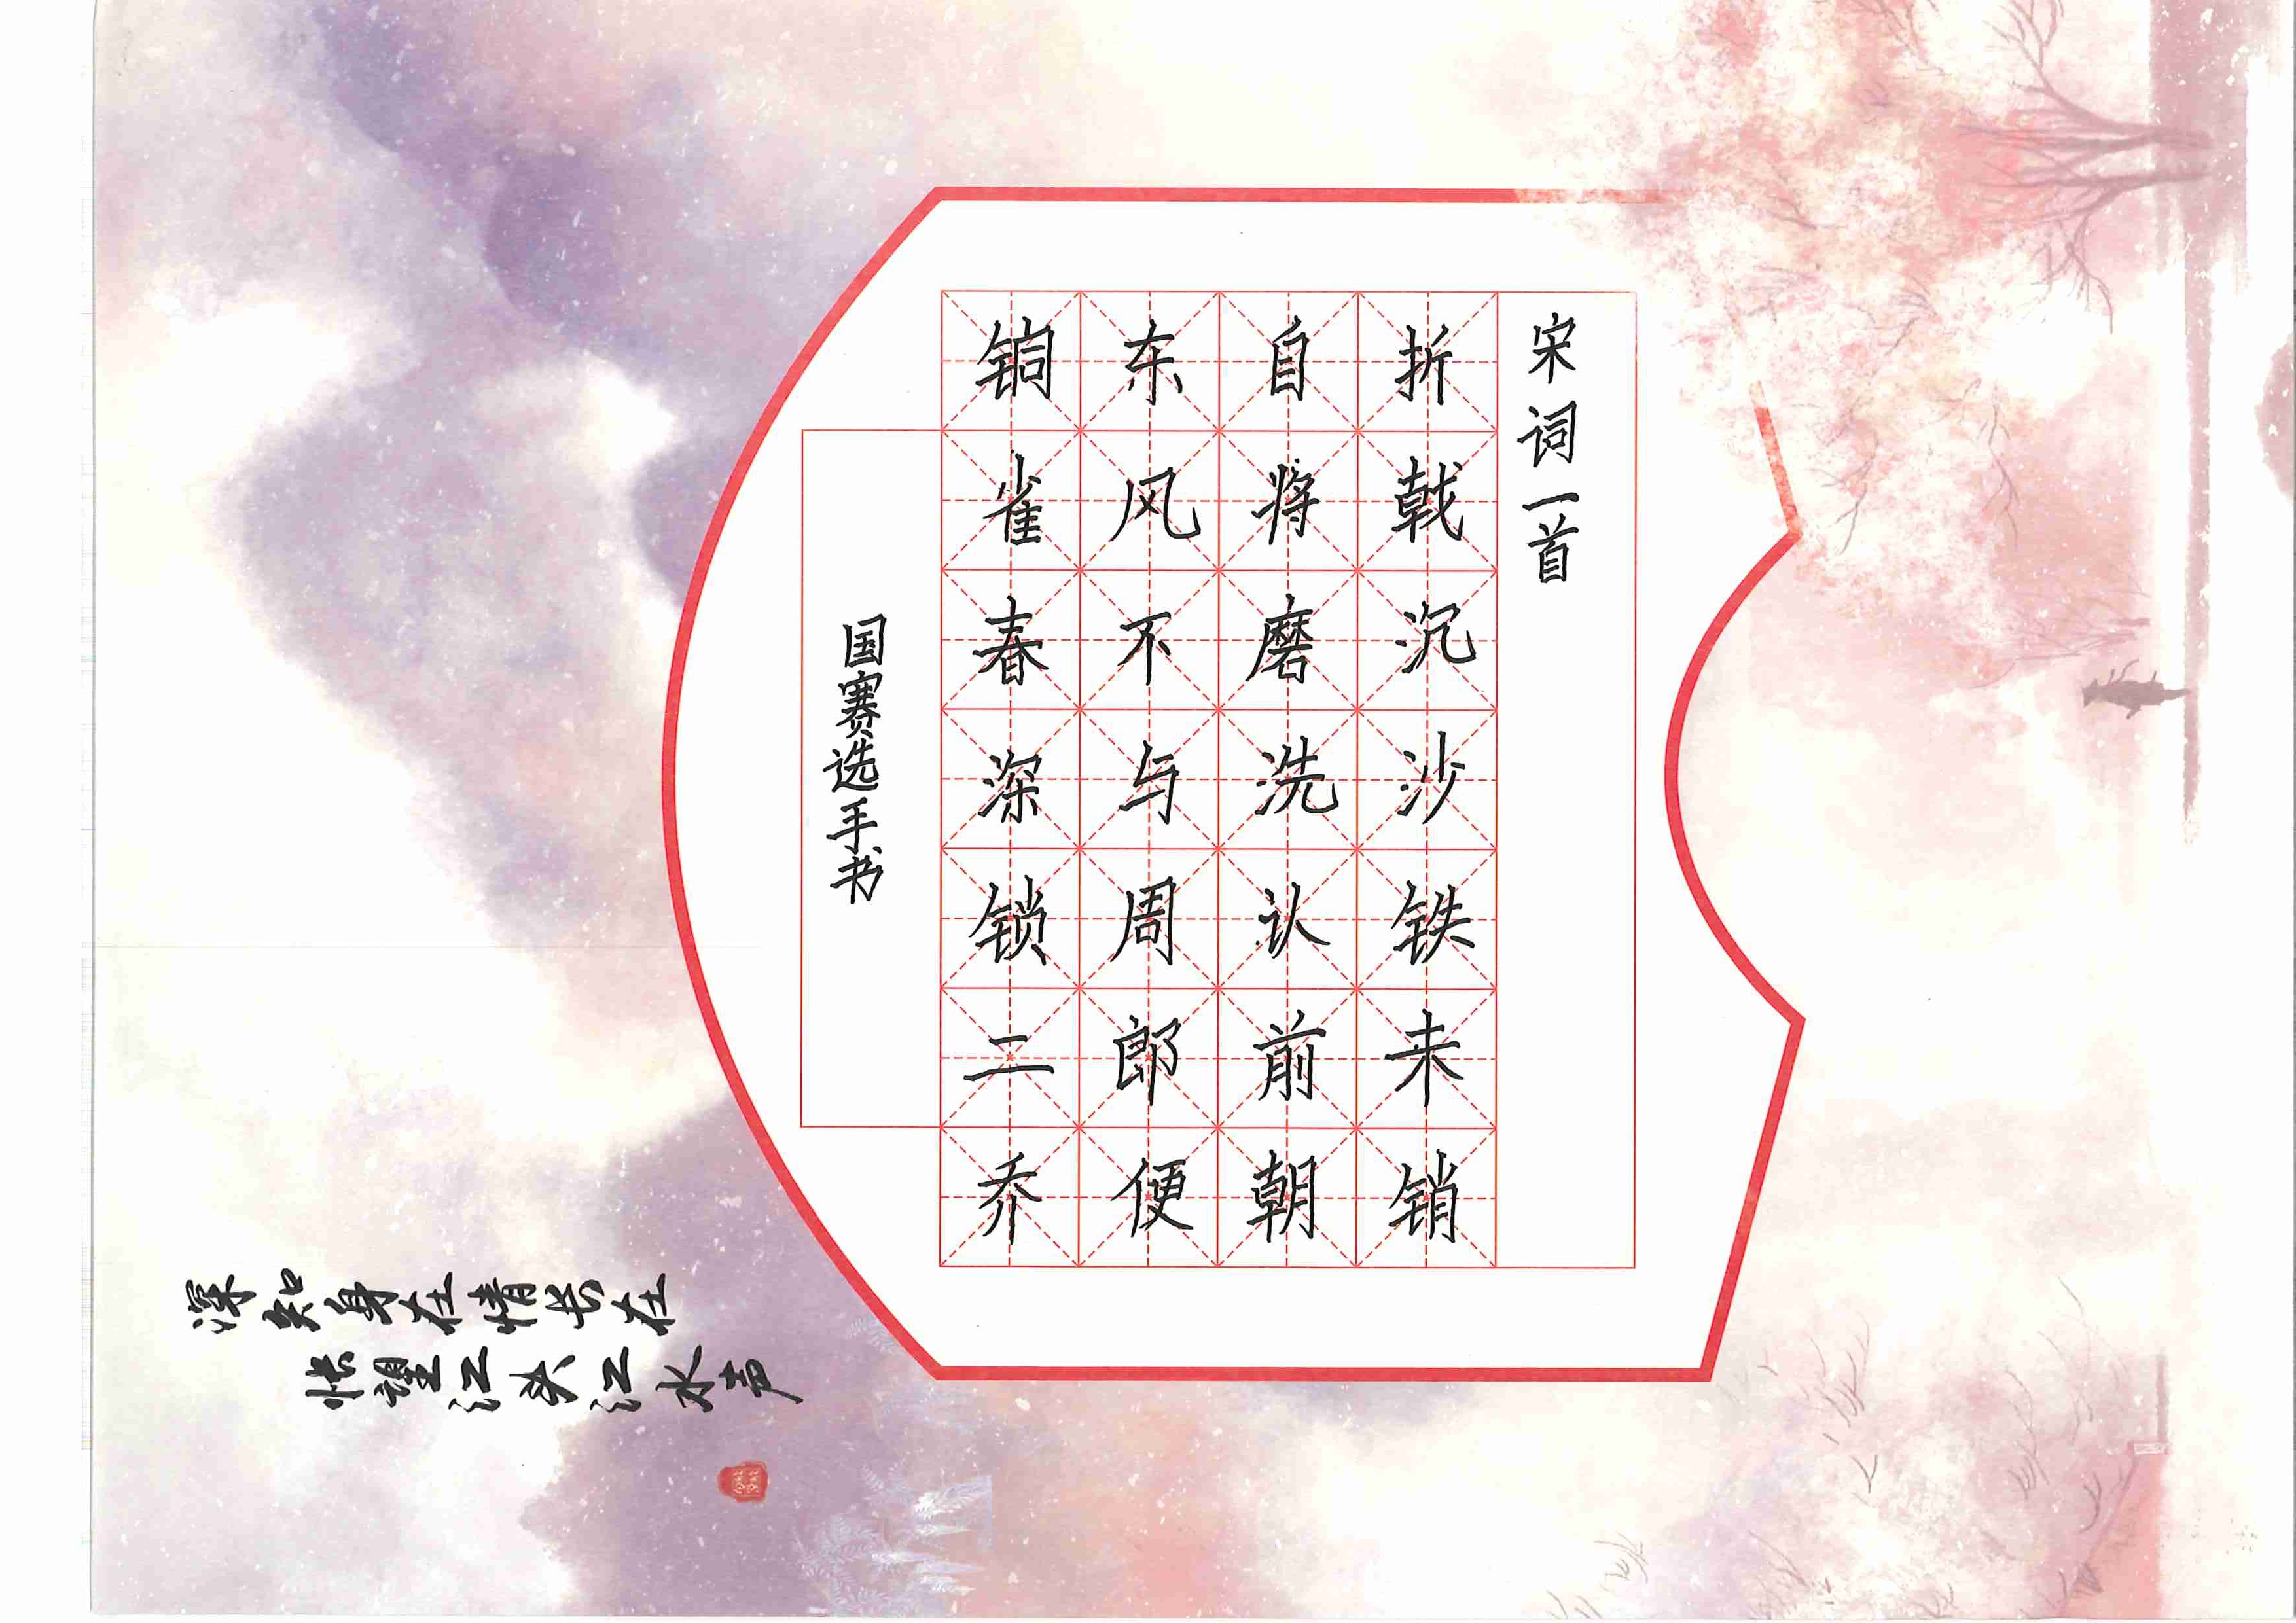 宋词一首
折戟沉沙铁未销
自将磨洗认前朝
东风不与周郎便
铜雀春深锁二乔
国赛选手书
深知身在情长在
怅望江头江水声